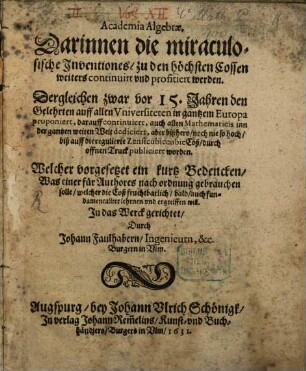 Academia Algebræ,
Darinnen die miraculo-
sische Inventiones/ zu den höchsten Cossen
weiters continuirt vnd profitiert werden.
Dergleichen zwar vor 15. Jahren den
Gelehrten auff allen Vniversiteten in gantzem Europa
proponiert, darauff continuiert, auch allen Mathematicis inn
der gantzen weiten Welt dediciert, aber bißhero/ noch nie so hoch/
biß auff die regulierte Zensicubiccubic Coß/ durch
offnen Truck publiciert worden.
Welcher vorgesetzet ein kurtz Bedencken/
Was einer für Authores nach ordnung gebrauchen
solle/ welcher die Coß fruchtbarlich/ bald/ auch fun-
damentaliter lehrnen vnd ergreiffen will.
In das Werck gerichtet/
Durch
Johann Faulhabern/ Ingenieurn, &c.
Burgern in Vlm.
Augspurg/ bey Johann Vlrich Schönigk/
In verlag Johann Remelins/ Kunst- vnd Buch-
händlers/ Burgers in Vlm/ 1631.